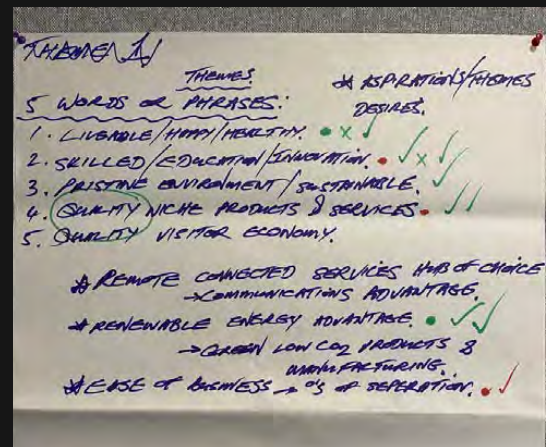 THEMES
* ASPIRATIONS/THEMES
DESIRES.
5 WORDS OR PHRASES:
1. LIVEABLE/HAPPY/HEALTHY.
2. SKILLED/EDUCATION/INNOVATION.
3. PRISTINE ENVIRONMENT/SUSTAINABLE.
4. QUALITY NICHE PRODUCTS & SERVICES.
5. QUALITY VISITOR ECONOMY.
* REMOTE CONNECTED SERVICES HUB OF CHOICE
→ COMMUNICATIONS ADVANTAGE.
* RENEWABLE ENERGY ADVANTAGE.
→ GREEN LOW CO2 PRODUCTS &
MANUFACTURING.
* EASE OF BUSINESS → OF SEPERATION.